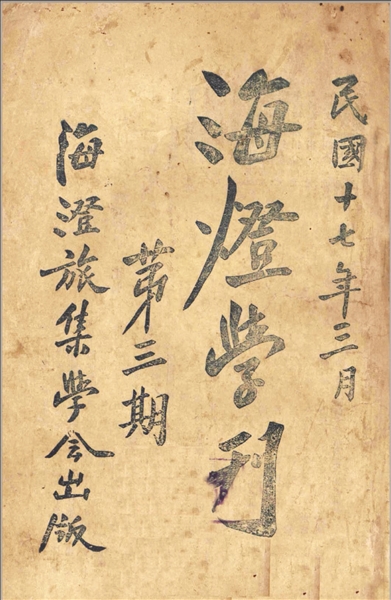 民國十七年三月
海燈学刊
第三期
海澄旅集学会出版